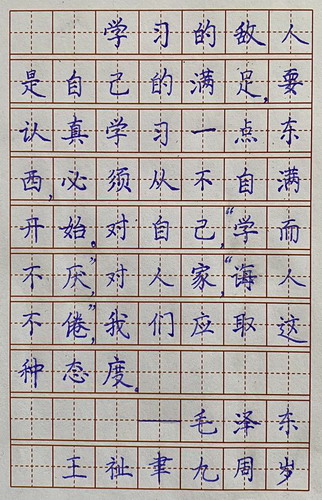 学习的敌人
是自己的满足，要
认真学习一点东
西，必须从不自满
开始。对自己，“学而
不厌”，对人家，“诲人
不倦”，我们应取这
种态度。
——毛泽东
王祉聿九周岁